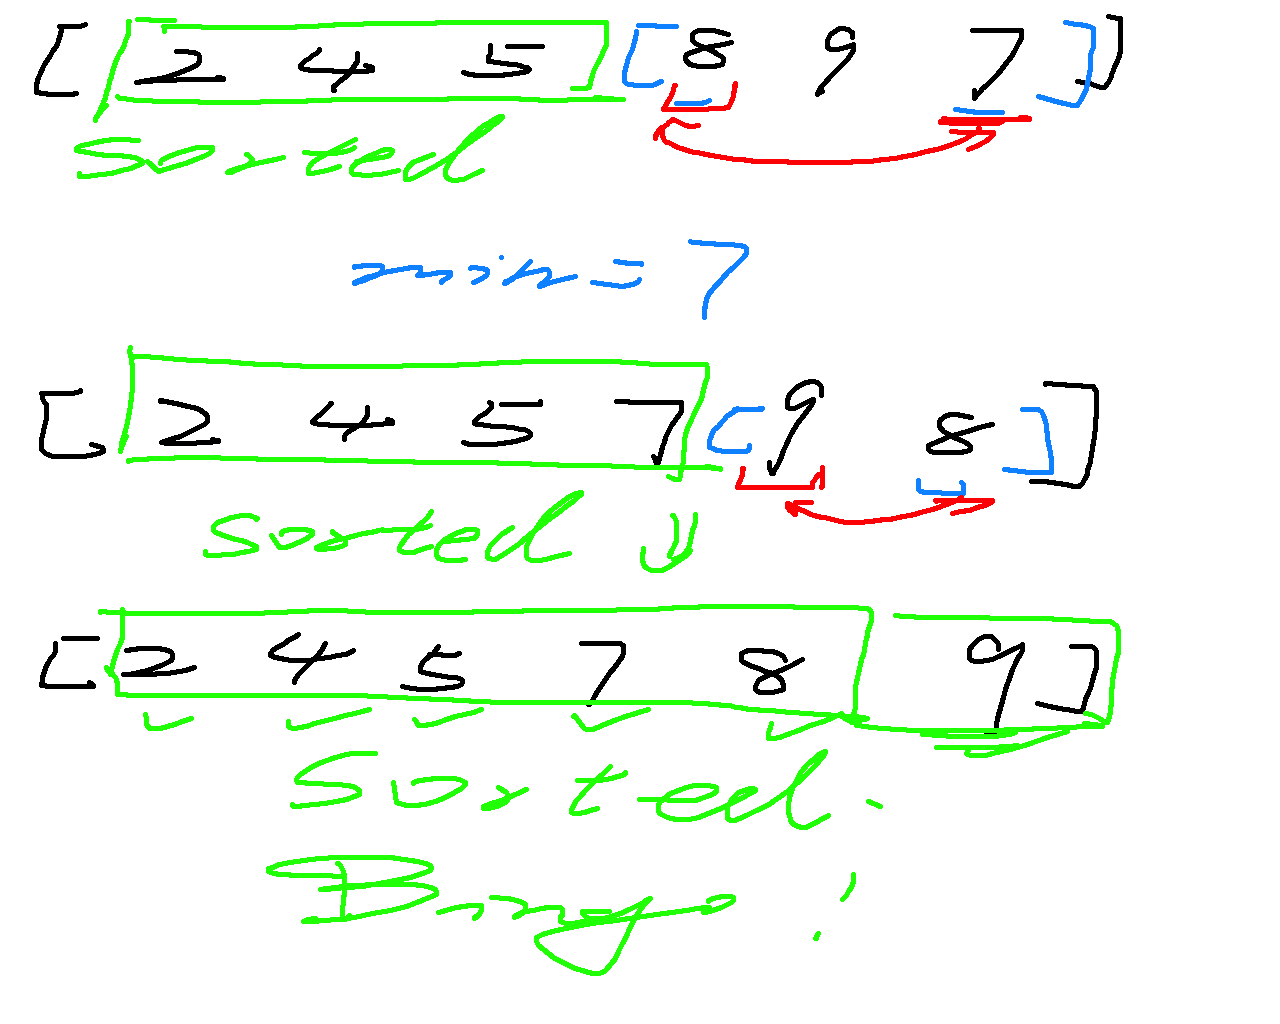 [ 2 4 5 [ 8 9 7 ] ]
sorted
min = 7
[ 2 4 5 7 [ 9 8 ] ]
sorted
[ 2 4 5 7 8 9 ]
sorted.
Bingo !